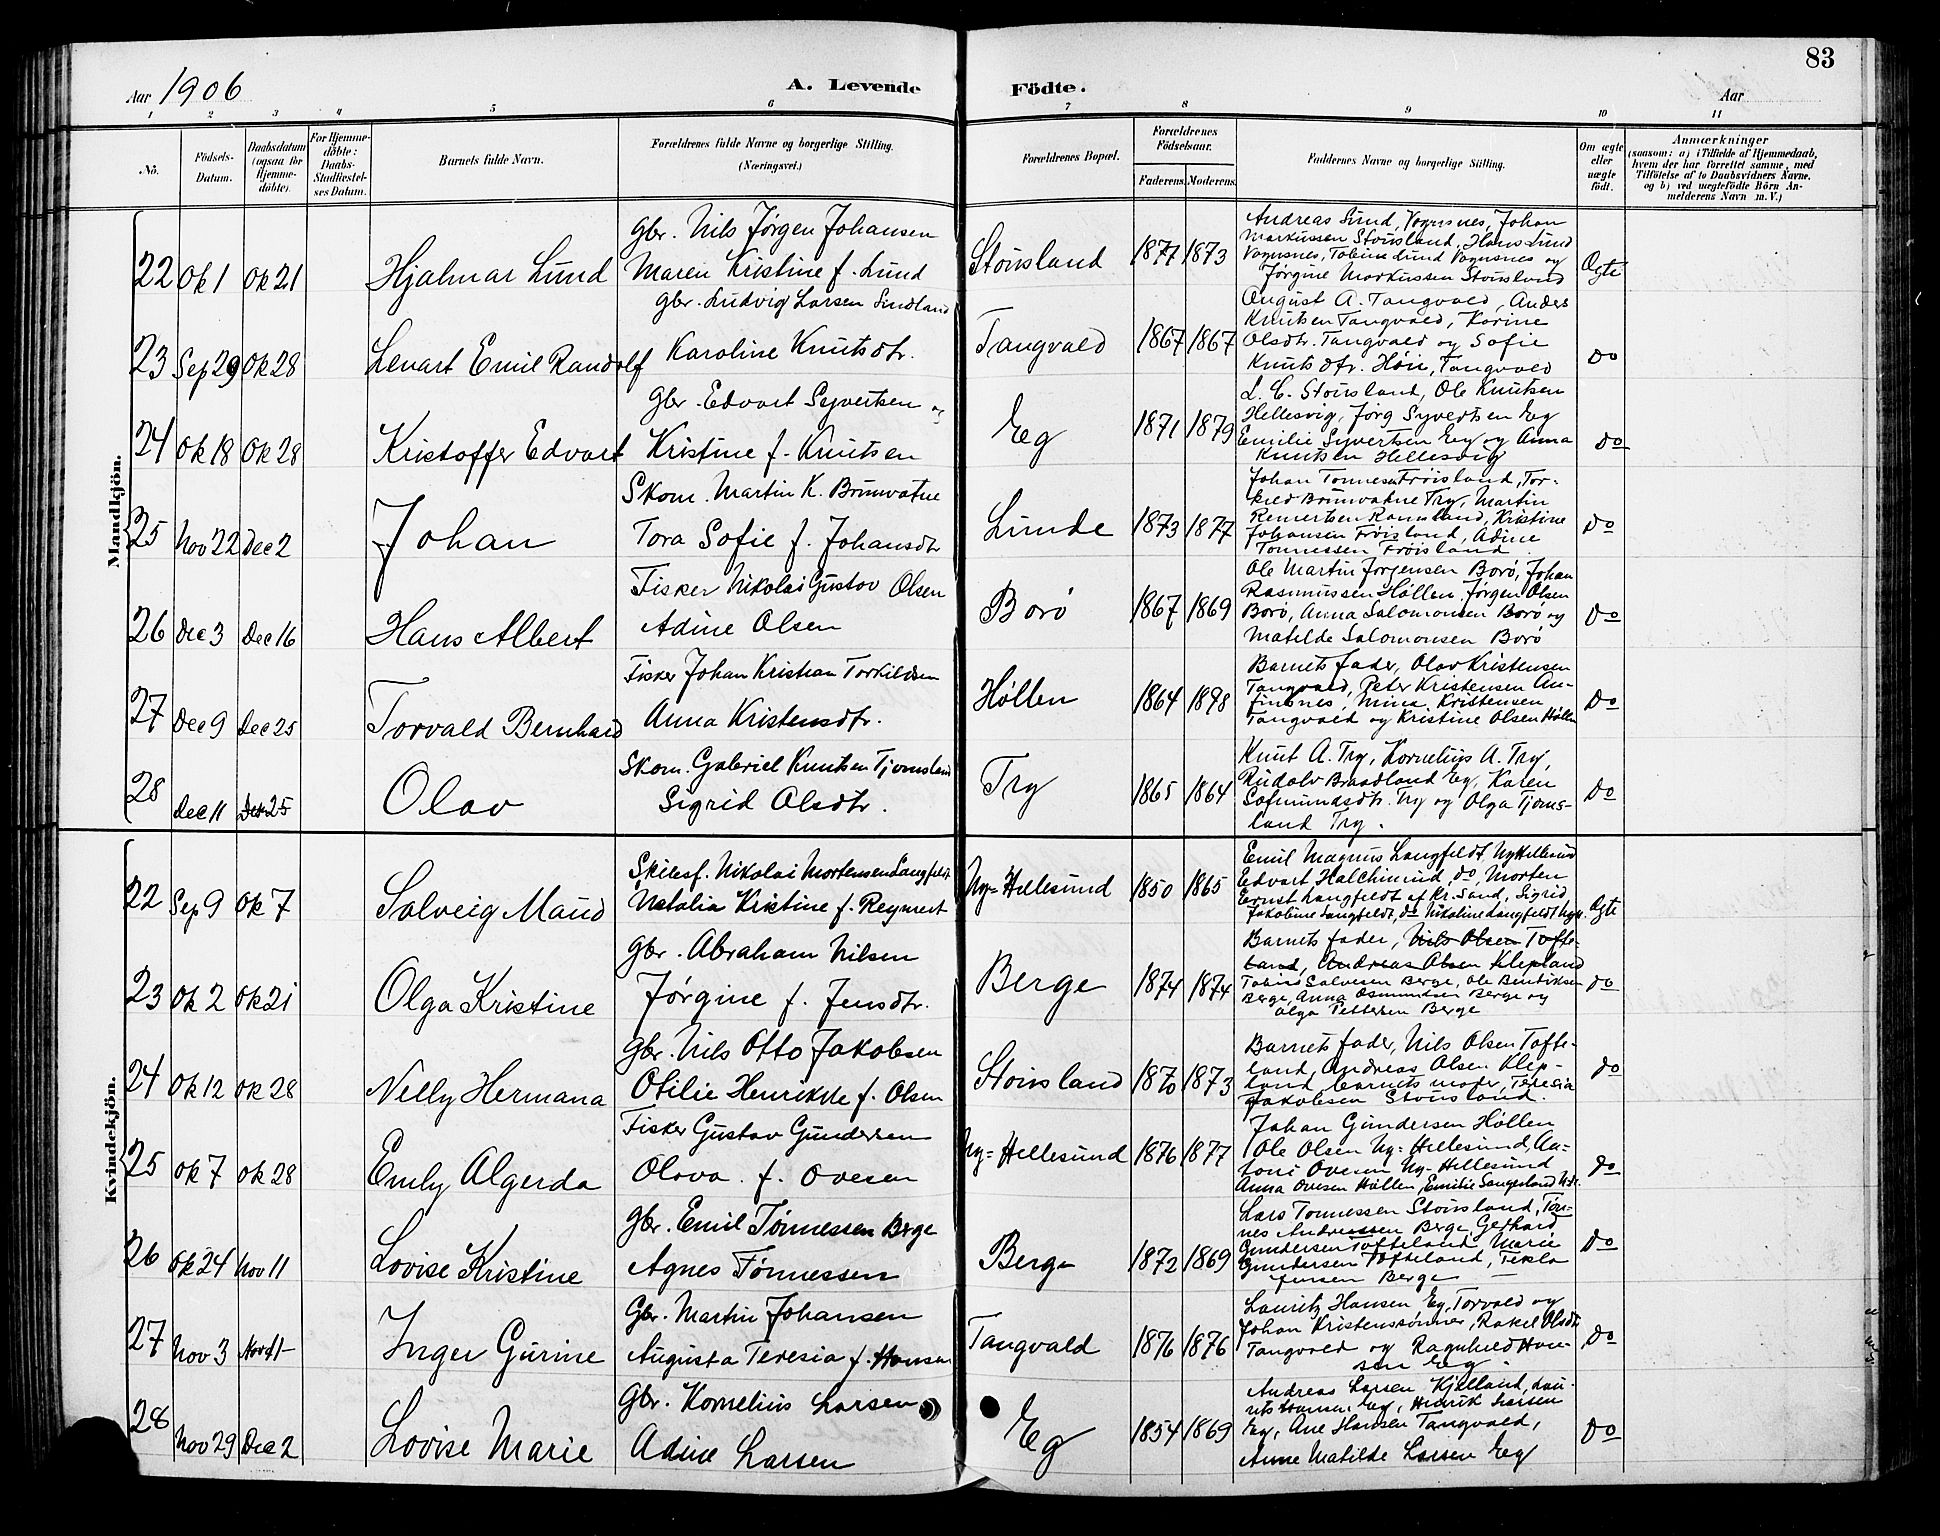 83
Aar 1906
A. Levende
Födte.
Aar
1 2 3 4 5 6 7 8 9 10 11
No.
Födsels-Datum.
Daabsdatum (ogsaa for Hjemme-döbte).
For Hjemme-döbte: Daabs-Stadfæstel-ses Datum.
Barnets fulde Navn.
Forældrenes fulde Navne og borgerlige Stilling.
(Næringsvei.)
Forældrenes Bopæl.
Forældrenes Födselsaar.
Faderens. Moderens.
Faddernes Navne og borgerlige Stilling.
Om ægte eller uægte födt.
Anmærkninger
(saasom: a) i Tilfælde af Hjemmedaab,
hvem der har forrettet samme, med
Tilföielse af to Daabsvidners Navne,
og b) ved uægtefödte Börn An-
melderens Navn m. V.)
Mandkjön.
22 Ok 1 Ok 21 Hjalmar Lund
Gbr. Nils Jørgen Johansen
Maren Kristine f. Lund
Støusland 1877 1873
Andreas Lund, Vognsnes, Johan
Markussen Støusland, Hans Lund
Vognsnes, Tobine Lund Vognsnes og
Jørgine Markussen Støusland
Ægte
23 Sep 29 Ok 28 Lenart Emil Randolf
Gbr. Ludvig Larsen Sindland
Karoline Knutsdtr.
Tangvald 1867 1867
August A. Tangvald, Anders
Knutsen Tangvald, Karine
Olsdtr. Tangvald og Sofie
Knutsdtr. Høie, Tangvald
Do
24 Ok 18 Ok 28 Kristoffer Edvart
Gbr. Edvart Syvertsen og
Kristine f. Knutsen
Eg 1871 1879
L. C. Støusland, Ole Knutsen
Hellesvig, Jørg Syvertsen Eg
Emilie Syvertsen Eg og Anna
Knutsen Hellesvig
Do
25 Nov 22 Dec 2 Johan
Skom. Martin K. Brunvatne
Tora Sofie f. Johansdtr
Lunde 1873 1877
Johan Tønnesen Frøisland, Tor-
kred Brunvatne Try, Martin
Remertsen Ramsland, Kristine
Johansen Frøisland, Adine
Tønnessen Frøisland.
Do
26 Dec 3 Dec 16 Hans Albert
Fisker Nikolai Gustav Olsen
Adine Olsen
Borø 1867 1869
Ole Martin Jørgensen Borø, Johan
Rasmussen Høllen, Jørgen Olsen
Borø, Anna Salomonsen Borø og
Matilde Salomonsen Borø
Do
27 Dec 9 Dec 25 Torvald Bernhard
Fisker Johan Kristian Torkildsen
Anna Kristensdtr.
Høllen 1864 1898
Barnets fader, Olav Kristensen
Tangvald, Peter Kristensen Au-
finsnes, Mina Kristensen
Tangvald og Kristine Olsen Høllen
Do
28 Dec 11 Dec 25 Olav
Skom. Gabriel Knutsen Tjomsland
Sigrid Olsdtr.
Try 1865 1864
Knut A. Try, Kornelius A. Try,
Rudolv Braadland Eg, Karen
Sofmundsdtr. Try og Olga Tjoms-
land Try.
Do
Kvindekjön.
22 Sep 9 Ok 7 Solveig Maud
Skibsf. Nikolai Mortensen Langfeldt
Natalia Kristine f. Reymert
Ny-Hellesund 1850 1865
Emil Magnus Langfeldt, Ny Hellesund
Edvart Halchimrud, do, Morten
Ernst Langfeldt af Kr. Sand, Sigrid
Jakobine Langfeldt, do Nikoline Langfeldt
Ægte
23 Ok 2 Ok 21 Olga Kristine
Gbr. Abraham Nilsen
Jørgine f. Jensdtr.
Berge 1874 1874
Barnets fader, Nils Olsen Tofte-
land, Andreas Olsen Klepland
Tobias Salvesen Berge, Ole Bentiksen
Berge, Anna Osmundsen Berge og
Olga Pettersen Berge
Do
24 Ok 12 Ok 28 Nelly Hermana
Gbr. Nils Otto Jakobsen
Otilie Henrikke f. Olsen
Støusland 1870 1873
Barnets fader, Nils Olsen Tofte-
land, Andreas Olsen Klep-
land, barnets moder, Teresia
Jakobsen Støusland.
Do
25 Ok 7 Ok 28 Emly Algerda
Fisker Gustav Gundersen
Olava. f. Ovesen
Ny-Hellesund 1876 1877
Johan Gundersen Høllen
Ole Olsen Ny-Hellesund, An-
toni Ovesen Ny-Hellesund
Anna Ovesen Høllen, Emilie Langerland
Do
26 Ok 24 Nov 11 Lovise Kristine
Gbr. Emil Tønnessen Berge
Agnes Tønnessen
Berge 1872 1869
Lars Tønnessen Støusland, Tøn-
nes Andreassen Berge, Gerhard
Gundersen Tofteland, Marie
Gundersen Tofteland, Tekla
Jensen Berge
Do
27 Nov 3 Nov 11 Inger Gurine
Gbr. Martin Johansen
Augusta Teresia f. Hansen
Tangvald 1876 1876
Lauritz Hansen Eg, Torvald og
Johan Kristenssønner, Rakel Olsdtr
Tangvald og Ragnhild Han-
sen Eg.
Do
28 Nov 29 Dec 2 Lovise Marie
Gbr. Kornelius Larsen
Adine Larsen
Eg 1854 1869
Andreas Larsen Kjelland, Lau-
rits Hansen Eg, Hedrik Larsen
Eg, Ane Hansen Tangvald,
Anne Matilde Larsen Eg
Do